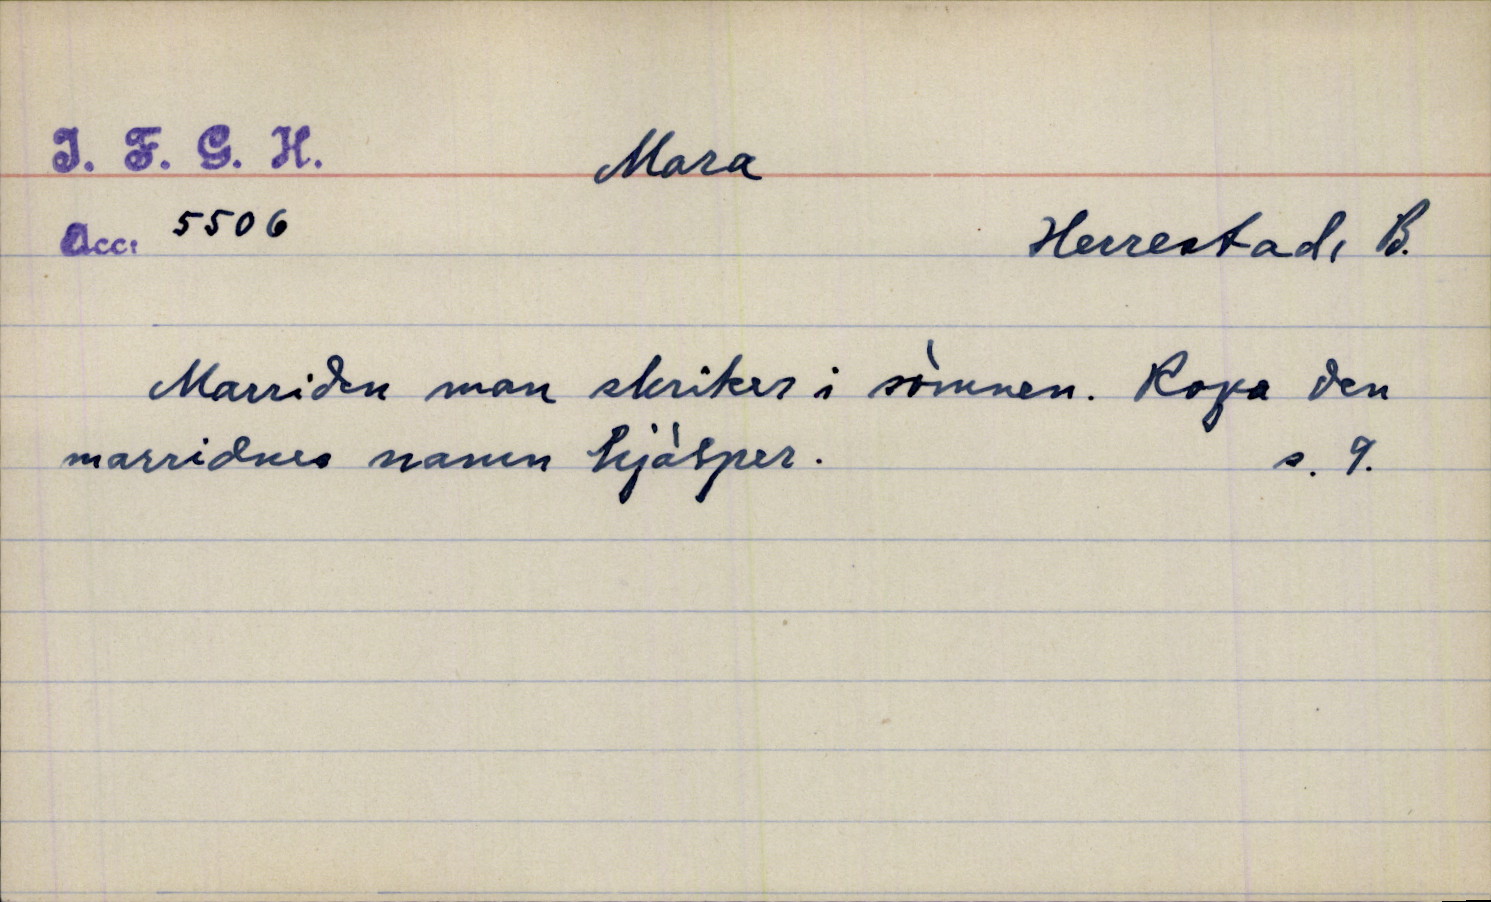 I. F. G. H.
Mara
Acc: 5506
Herrestad, B.
Marriden man skriker i sömnen. Ropa den
marridnes namn hjälper. s. 9.